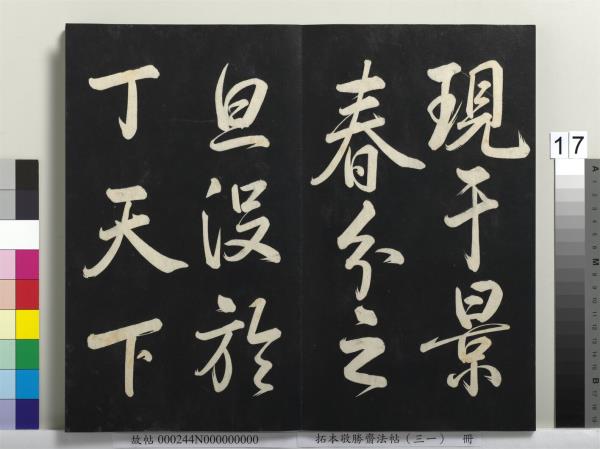 現于景
春分之
旦没於
丁天下
17
故帖 000244N000000000
拓本敬勝齋法帖(三一) 冊